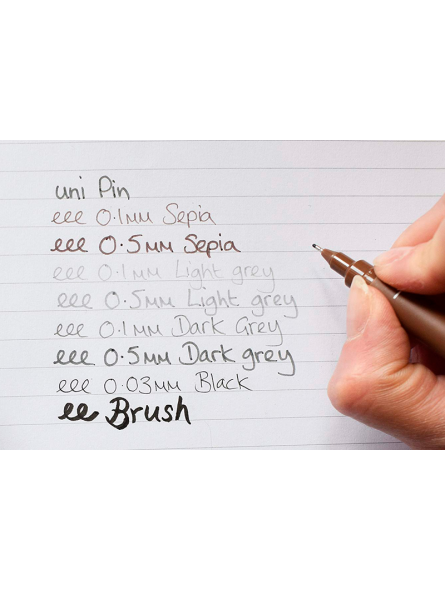 uni Pin
eee 0.1mm Sepia
eee 0.5mm Sepia
eee 0.1mm Light grey
eee 0.5mm Light grey
eee 0.1mm Dark Grey
eee 0.5mm Dark grey
eee 0.03mm Black
ee Brush